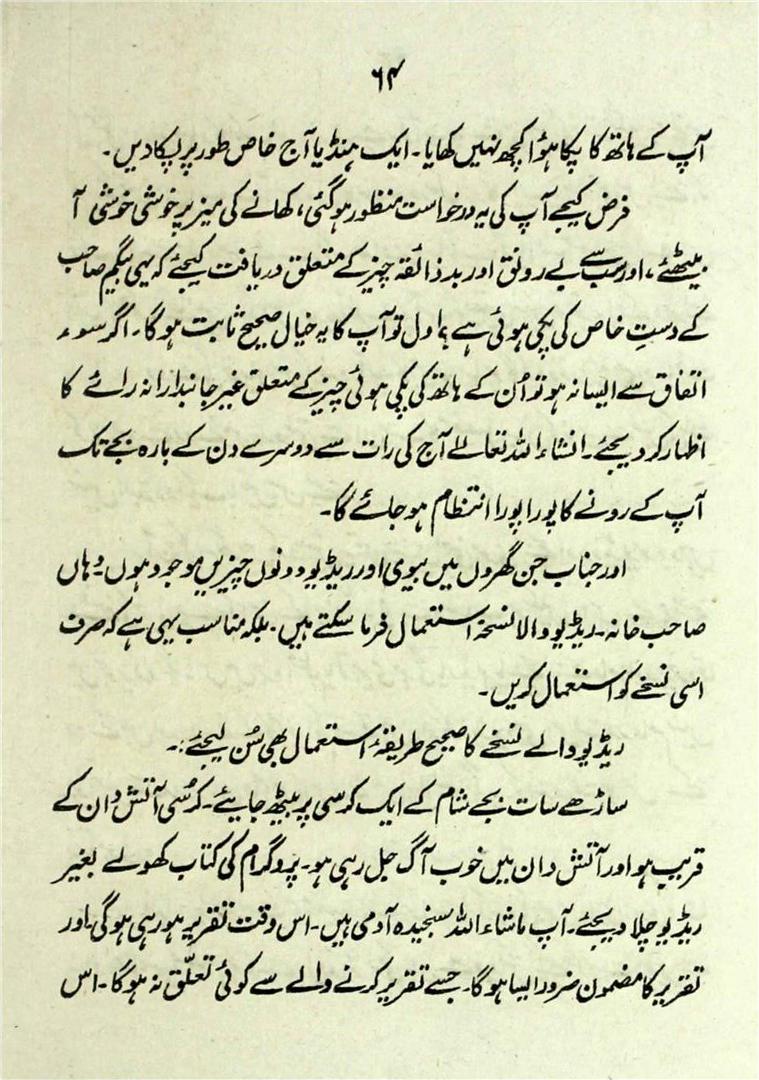 ۶۴
آپ کے ہاتھ کا پکا ہوُا کچھ نہیں کھایا۔ ایک ہنڈیا آج خاص طور پر پکا دیں۔
فرض کیجے آپ کی یہ درخواست منظور ہو گئی، کھانے کی میز پر خوشی خوشی آ
بیٹھئے، اور سب سے بے رونق اور بدذائقہ چیز کے متعلق دریافت کیجئے کہ یہی بیگم صاحب
کے دستِ خاص کی پکی ہوئی ہے؟ اول تو آپ کا یہ خیال صحیح ثابت ہو گا۔ اگر سوء
اتفاق سے ایسا نہ ہو تو اُن کے ہاتھ کی پکی ہوئی چیز کے متعلق غیر جانبدارانہ رائے کا
اظہار کر دیجئے۔ انشاء اللہ تعالےٰ آج کی رات سے دوسرے دن کے بارہ بجے تک
آپ کے رونے کا پورا پورا انتظام ہو جائے گا۔
اور جناب جن گھروں میں بیوی اور ریڈیو دونوں چیزیں موجود ہوں۔ وہاں
صاحب خانہ۔ ریڈیو والا نسخہ استعمال فرما سکتے ہیں۔ بلکہ مناسب یہی ہے کہ صرف
اسی نسخے کو استعمال کریں۔
ریڈیو والے نسخے کا صحیح طریقۂ استعمال بھی سُن لیجئے:۔
ساڑھے سات بجے شام کے ایک کرسی پر بیٹھ جایئے۔ کرُسی آتش دان کے
قریب ہو اور آتش دان میں خوب آگ جل رہی ہو۔ پروگرام کی کتاب کھولے بغیر
ریڈیو چلا دیجئے۔ آپ ماشاء اللہ سنجیدہ آدمی ہیں۔ اس وقت تقریر ہو رہی ہو گی۔ اور
تقریر کا مضمون ضرور ایسا ہو گا۔ جسے تقریر کرنے والے سے کوئی تعلّق نہ ہو گا۔ اس